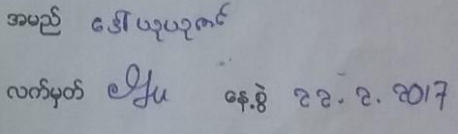 အမည် ဒေါ်ယုယုတင်
လက်မှတ် နေ့စွဲ ၃၃. ၃. 2017